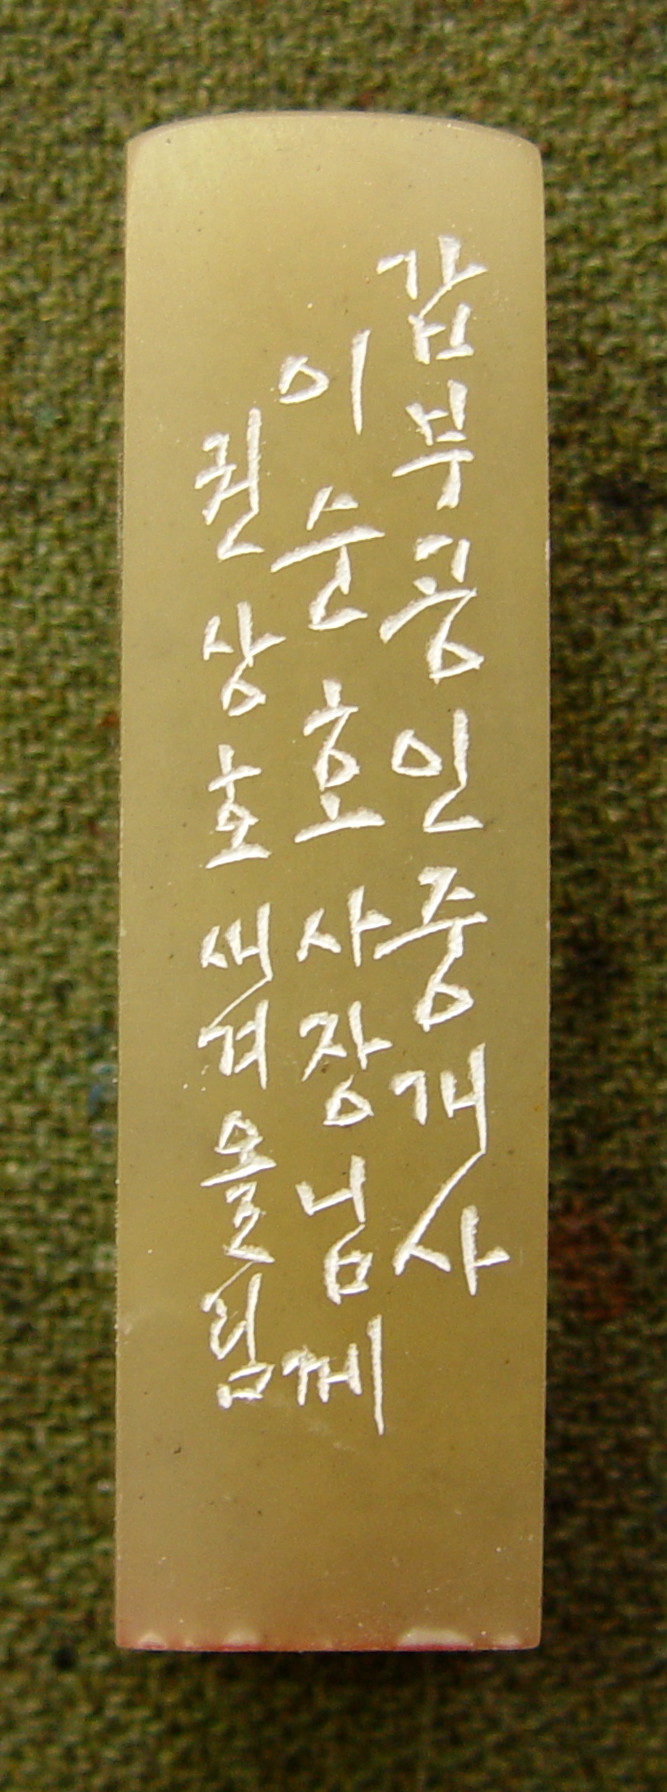 갑부공인중개사
이순호사장님께
권상호새겨올림